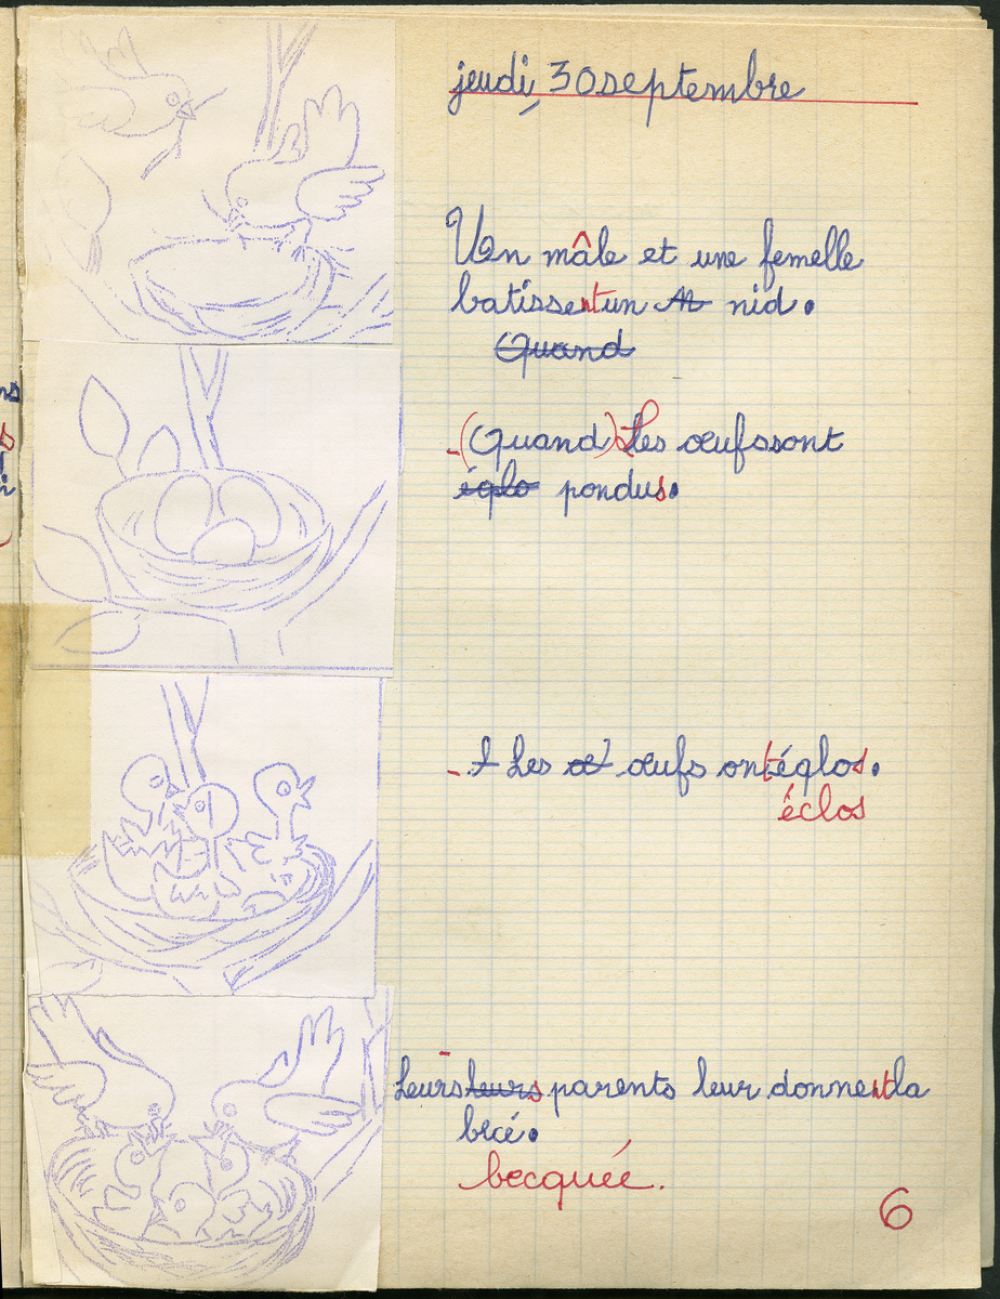 jeudi, 30 septembre
Un mâle et une femelle
batissent un nid.
Quand
-(Quand) Les œufs sont
églo pondus.
- Les œ œufs ont églos.
éclos
Leurs leurs parents leur donnent la
bécé.
becquée.
6